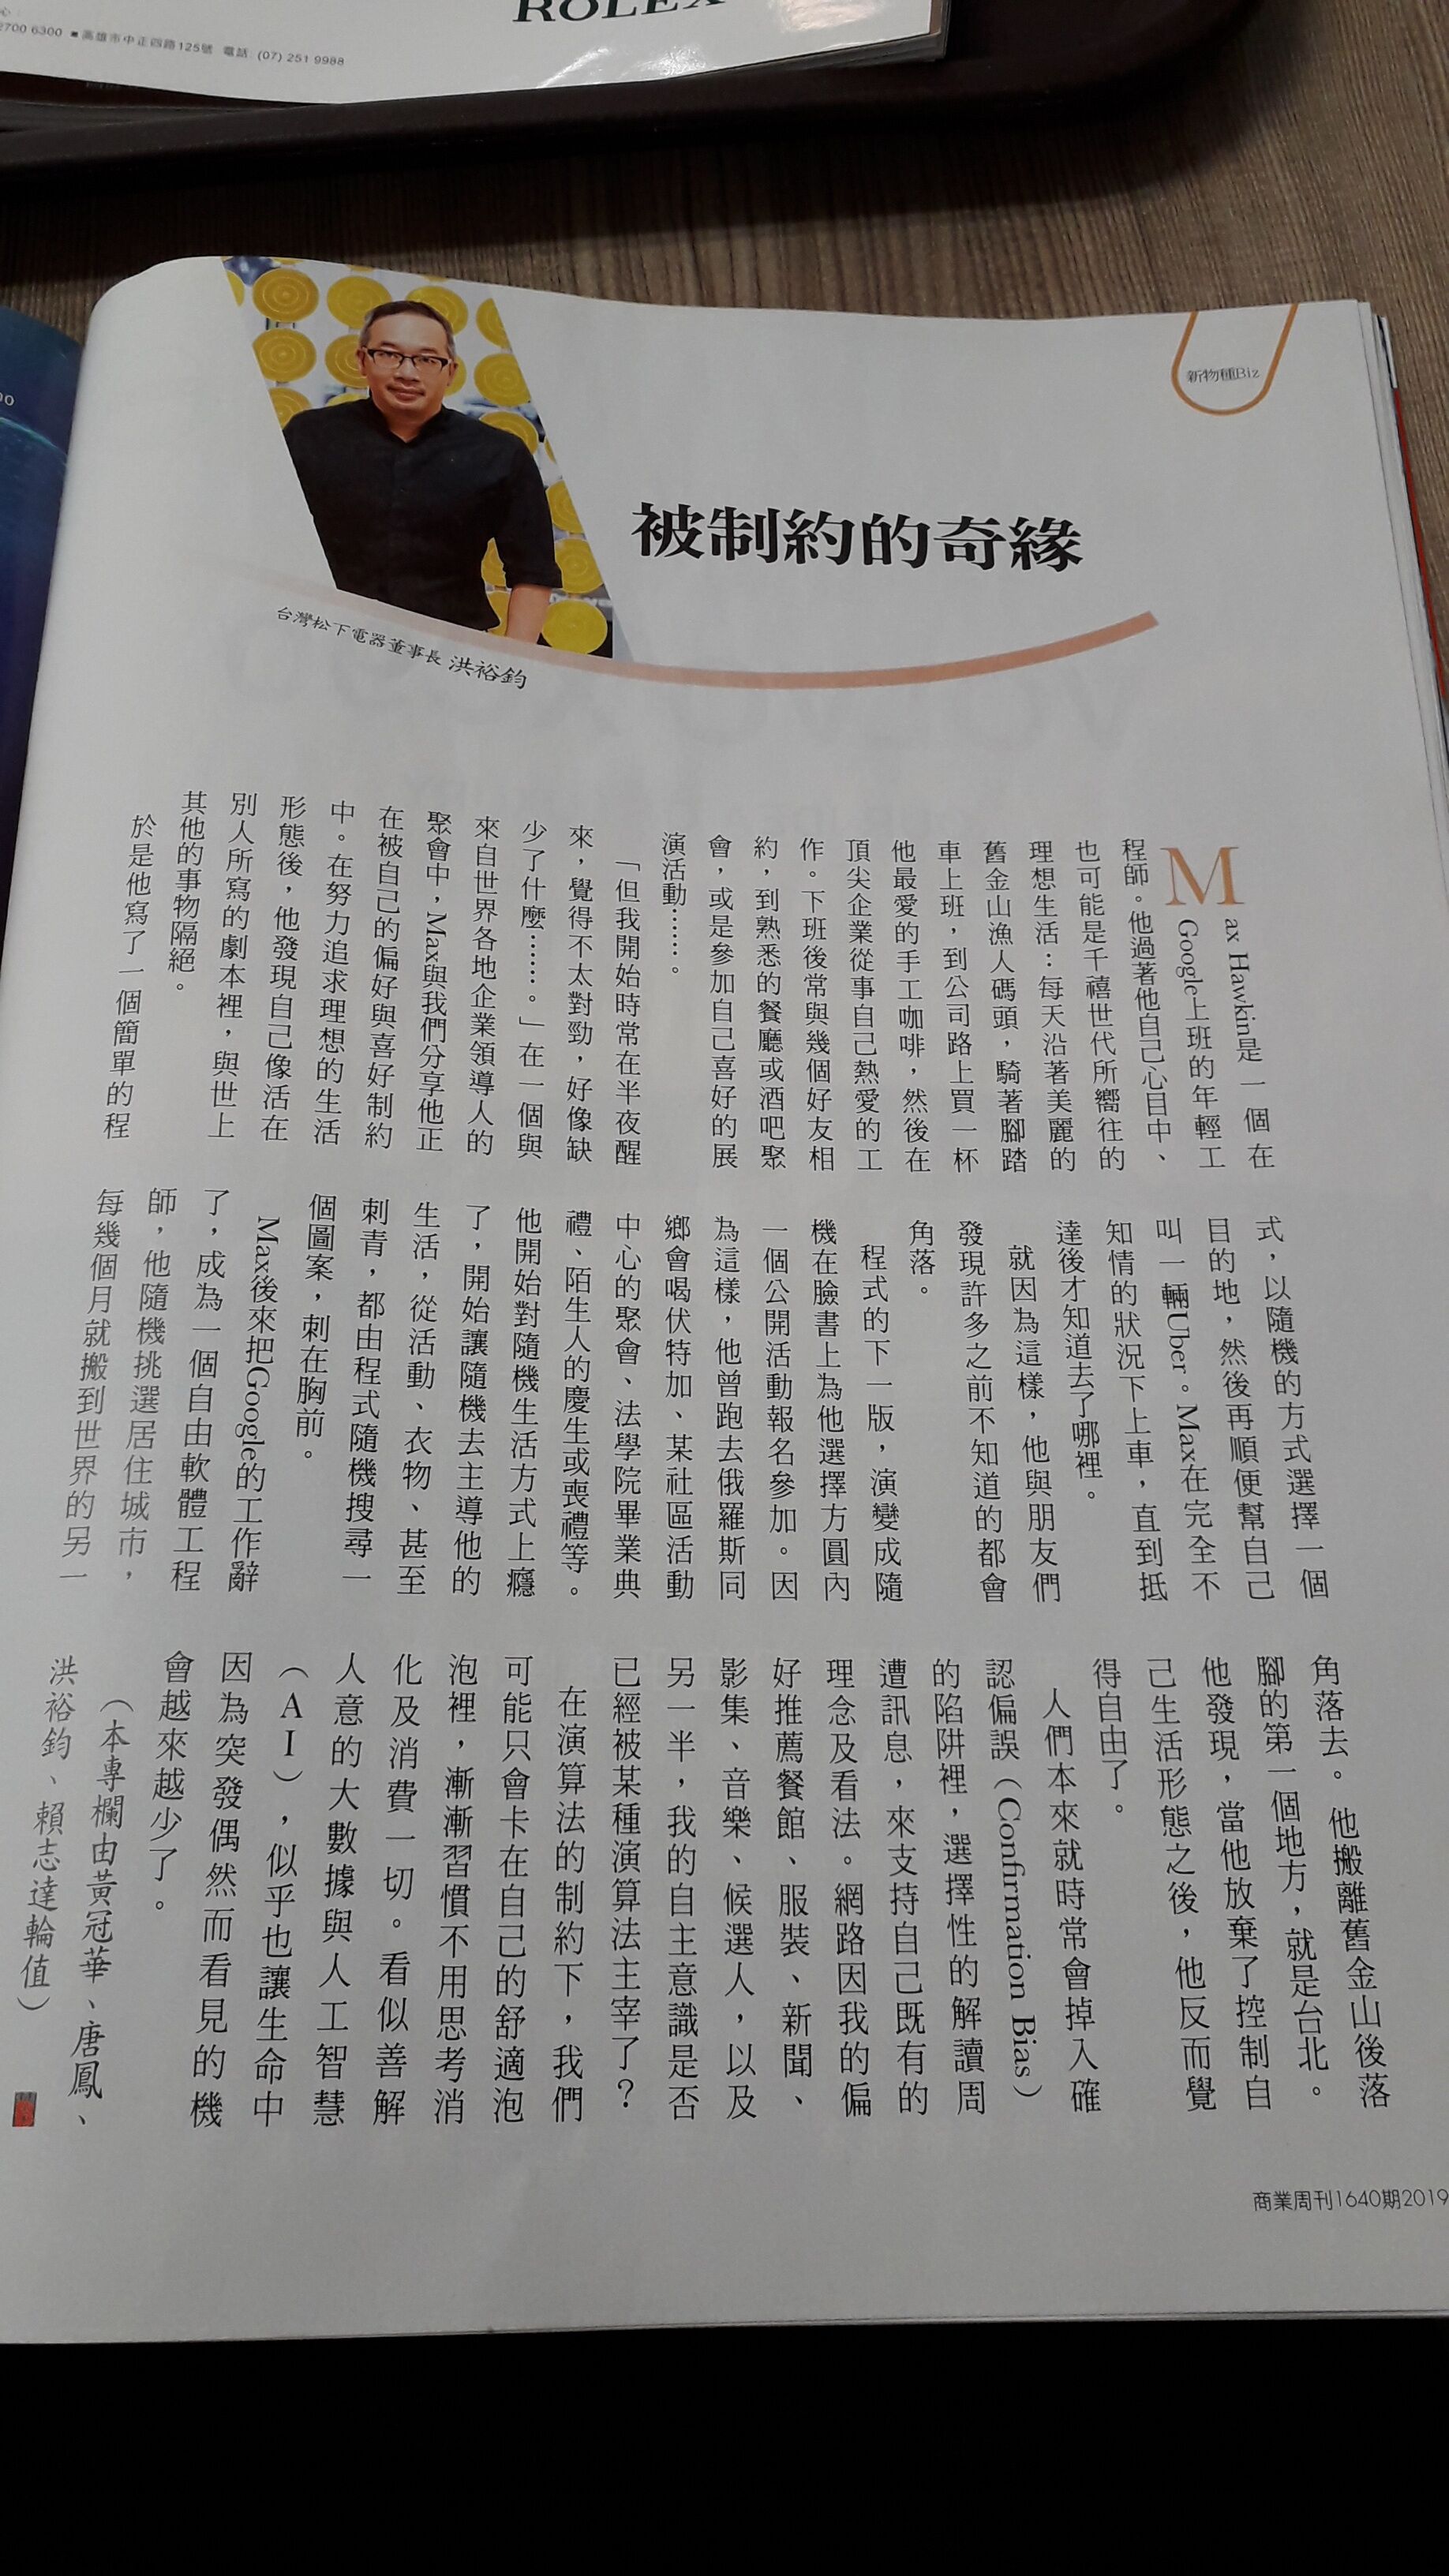 ROLEX
2700 6300 ■高雄市中正四路125號 電話 (07) 251 9988
新物種Biz
被制約的奇緣
台灣松下電器董事長 洪裕鈞
Max Hawkin是一個在
Google上班的年輕工
程師。他過著他自己心目中、
也可能是千禧世代所嚮往的
理想生活：每天沿著美麗的
舊金山漁人碼頭，騎著腳踏
車上班，到公司路上買一杯
他最愛的手工咖啡，然後在
頂尖企業從事自己熱愛的工
作。下班後常與幾個好友相
約，到熟悉的餐廳或酒吧聚
會，或是參加自己喜好的展
演活動……。
「但我開始時常在半夜醒
來，覺得不太對勁，好像缺
少了什麼……。」在一個與
來自世界各地企業領導人的
聚會中，Max與我們分享他正
在被自己的偏好與喜好制約
中。在努力追求理想的生活
形態後，他發現自己像活在
別人所寫的劇本裡，與世上
其他的事物隔絕。
於是他寫了一個簡單的程
式，以隨機的方式選擇一個
目的地，然後再順便幫自己
叫一輛Uber。Max在完全不
知情的狀況下上車，直到抵
達後才知道去了哪裡。
就因為這樣，他與朋友們
發現許多之前不知道的都會
角落。
程式的下一版，演變成隨
機在臉書上為他選擇方圓內
一個公開活動報名參加。因
為這樣，他曾跑去俄羅斯同
鄉會喝伏特加、某社區活動
中心的聚會、法學院畢業典
禮、陌生人的慶生或喪禮等。
他開始對隨機生活方式上癮
了，開始讓隨機去主導他的
生活，從活動、衣物、甚至
刺青，都由程式隨機搜尋一
個圖案，刺在胸前。
Max後來把Google的工作辭
了，成為一個自由軟體工程
師，他隨機挑選居住城市，
每幾個月就搬到世界的另一
角落去。他搬離舊金山後落
腳的第一個地方，就是台北。
他發現，當他放棄了控制自
己生活形態之後，他反而覺
得自由了。
人們本來就時常會掉入確
認偏誤（Confirmation Bias）
的陷阱裡，選擇性的解讀周
遭訊息，來支持自己既有的
理念及看法。網路因我的偏
好推薦餐館、服裝、新聞、
影集、音樂、候選人，以及
另一半，我的自主意識是否
已經被某種演算法主宰了？
在演算法的制約下，我們
可能只會卡在自己的舒適泡
泡裡，漸漸習慣不用思考消
化及消費一切。看似善解
人意的大數據與人工智慧
（AI），似乎也讓生命中
因為突發偶然而看見的機
會越來越少了。
（本專欄由黃冠華、唐鳳、
洪裕鈞、賴志達輪值）
商業周刊1640期2019